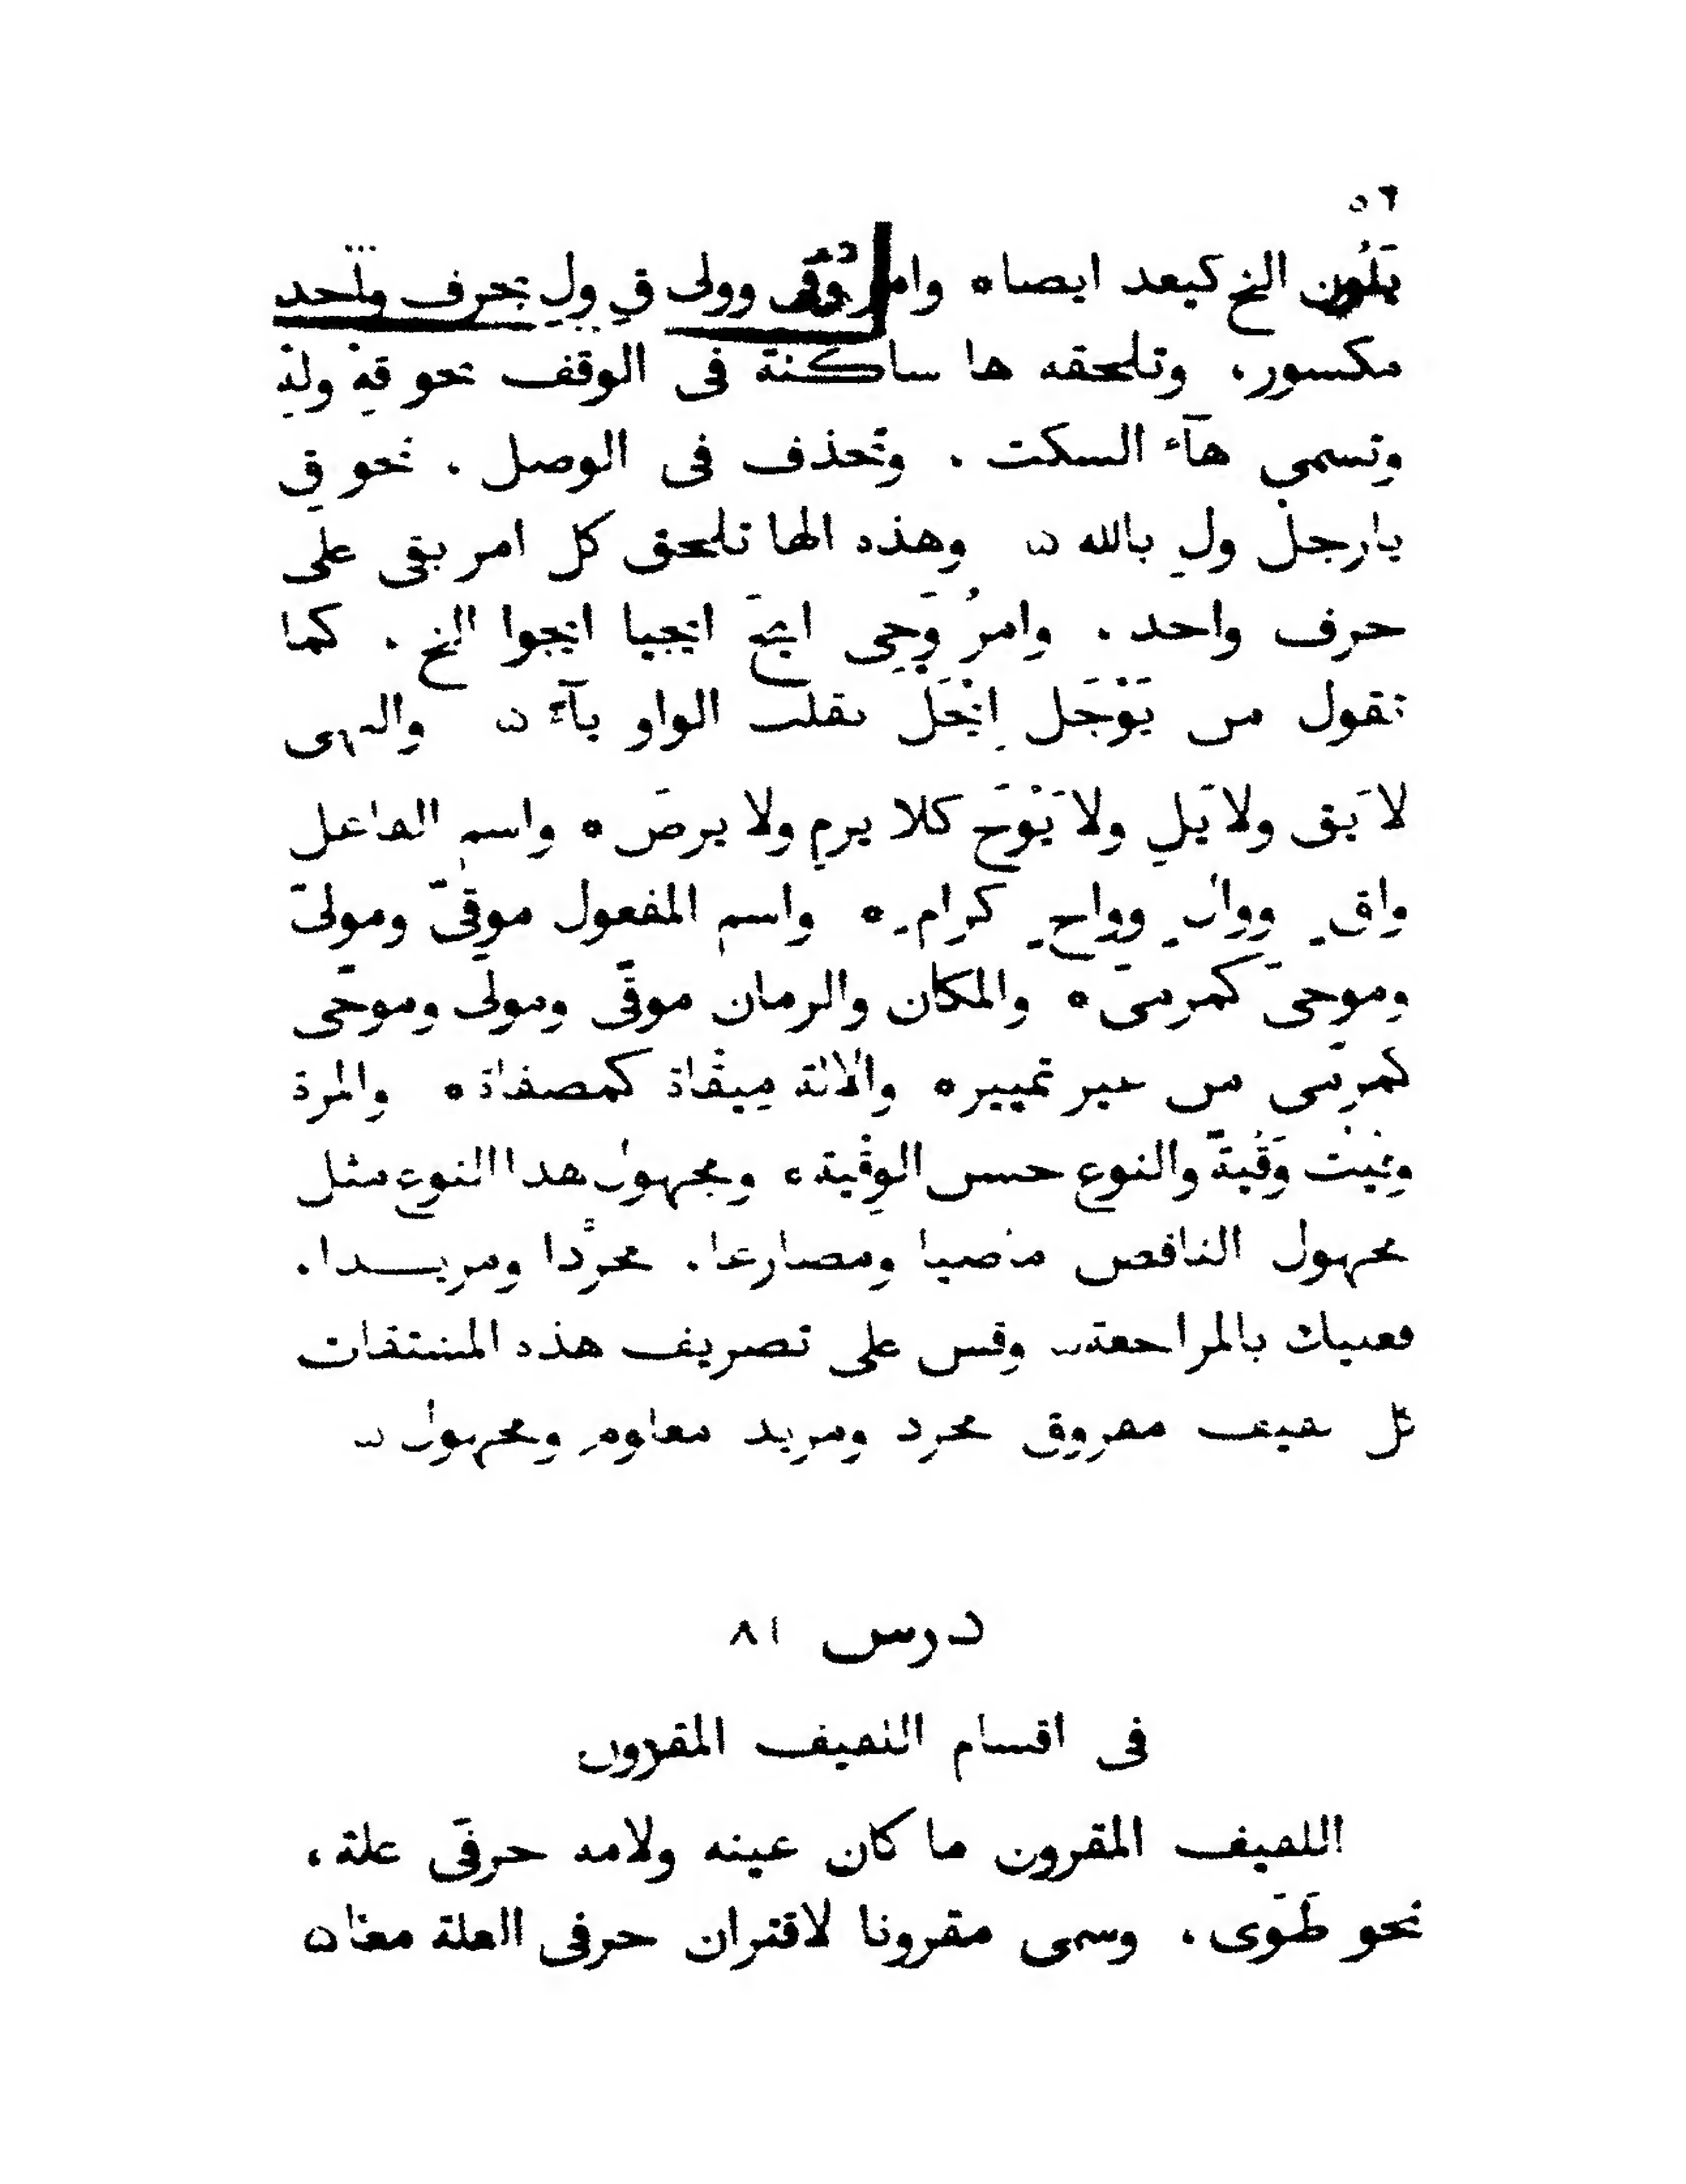 ٥٦
يَلُون الخ كيعد ايضا * وامر وَقى وولى قِ ولِ بحرف واحد
مكسور، وتلحقه ها ساكنة فى الوقف نحو قِهْ ولِهْ
وتسمى هآء السكت . وتُحذف فى الوصل . نحو قِ
يا رجل ولِ بالله ۞ وهذه الها تلحق كل امر بقى على
حرف واحد . وامرُ وَجِى ايجَ ايجيا ايجوا الخ . كما
تقول من يَوْجَل اِيْجَلْ بقلب الواو يآءً ۞ والنهى
لا يَقِ ولا يَلِ ولا يَوْجَ كلا يرمِ ولا يرضَ * واسم الفاعل
واقٍ ووالٍ وواجٍ كرامٍ * واسم المفعول موقىّ ومولىّ
وموجىّ كمرمىّ * والمكان والزمان موقًى ومولًى وموجًى
كمرمًى من غير تمييز * والالة مِيقاة كمصفاة * والمرة
وقَيْت وَقْيةً والنوع حسن الوِقْية، ومجهول هذا النوع مثل
مجهول الناقص ماضيا ومضارعا . مجرَّدا ومزيــدا .
فعليك بالمراجعة ۞ وقس على تصريف هذه المشتقات
كل لفيف مفروق مجرد ومزيد معلوم ومجهول ۞
درس ٨١
فى اقسام اللفيف المقرون
اللفيف المقرون ما كان عينه ولامه حرفَى علة ،
نحو طَوَى . وسمى مقرونا لاقتران حرفى العلة معًا ۞